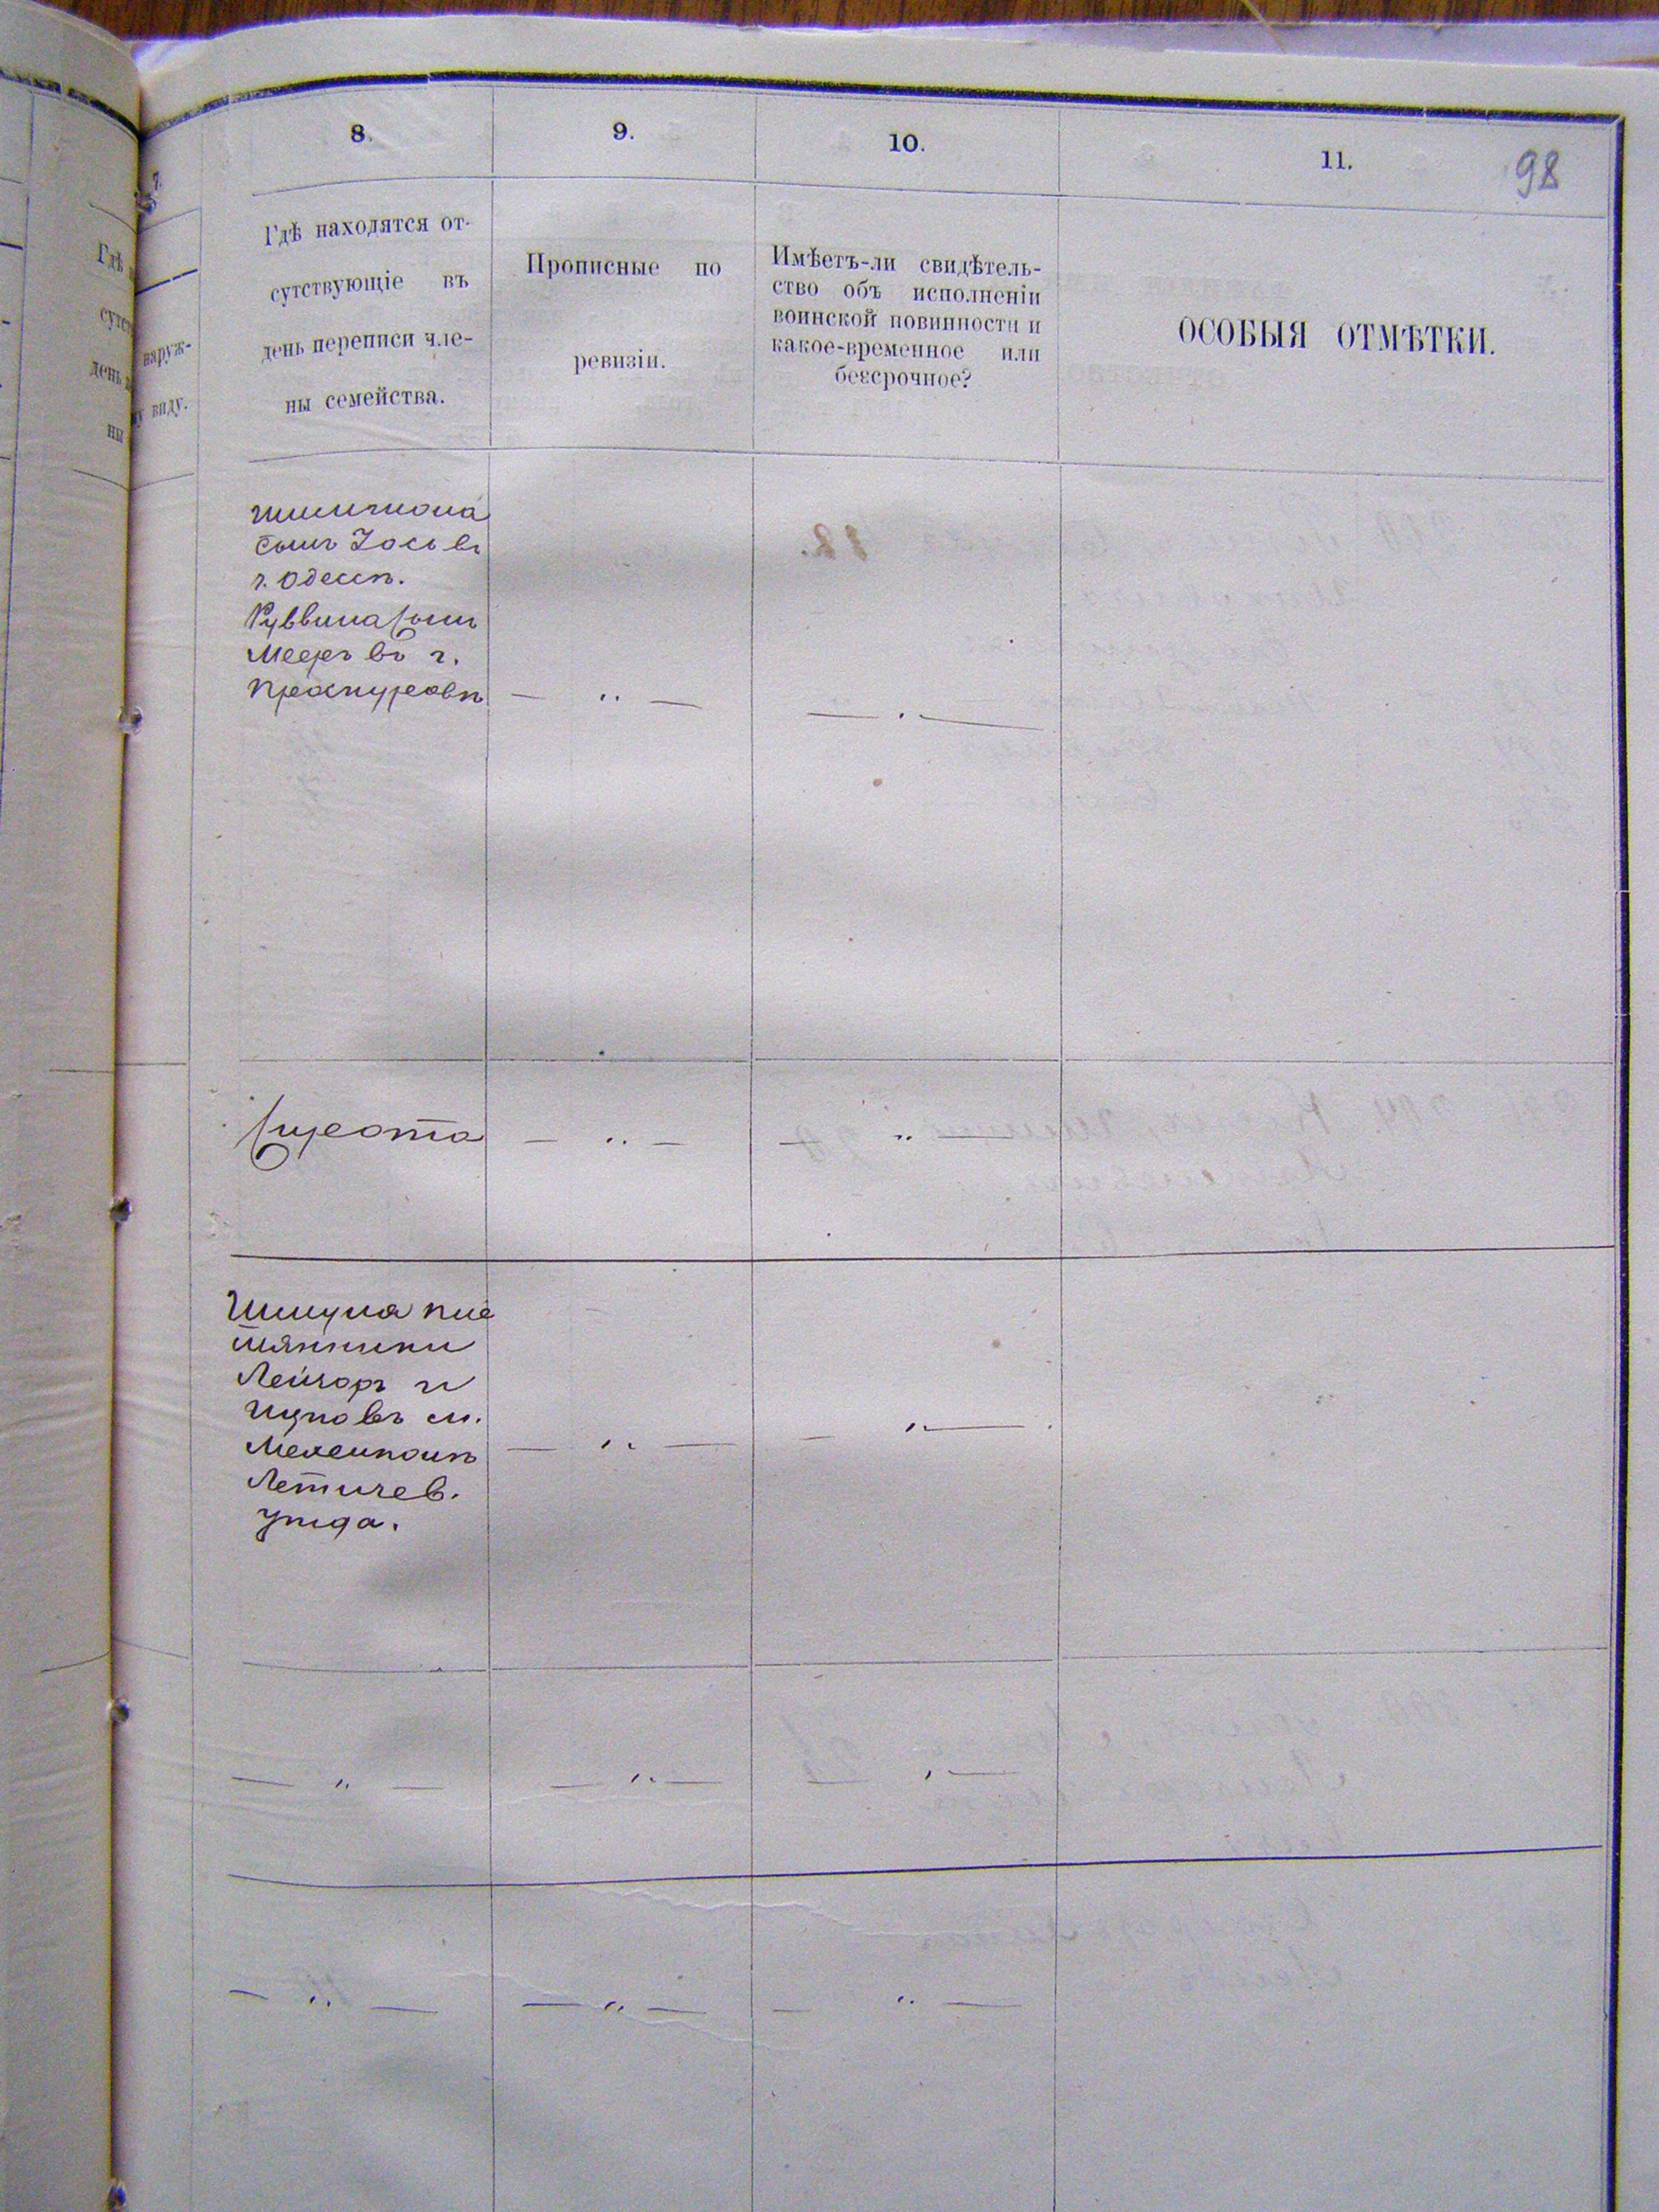 8.
9.
10.
11.
98
Гдѣ находятся от-
сутствующіе въ
день переписи чле-
ны семейства.
Прописные по
ревизіи.
Имѣетъ-ли свидѣтель-
ство объ исполненіи
воинской повинности и
какое-временное или
безсрочное?
ОСОБЫЯ ОТМѢТКИ.
сынъ
г. Одессѣ.
Руввина сынъ
Мееръ въ г.
Проскуровѣ
— " —
— " —
Сирота
— " —
— " —
Шмуна пле
мянники
Лейзоръ и
м.
Летичев.
уѣзда.
— " —
— " —
— " —
— " —
— " —
— " —
— " —
— " —